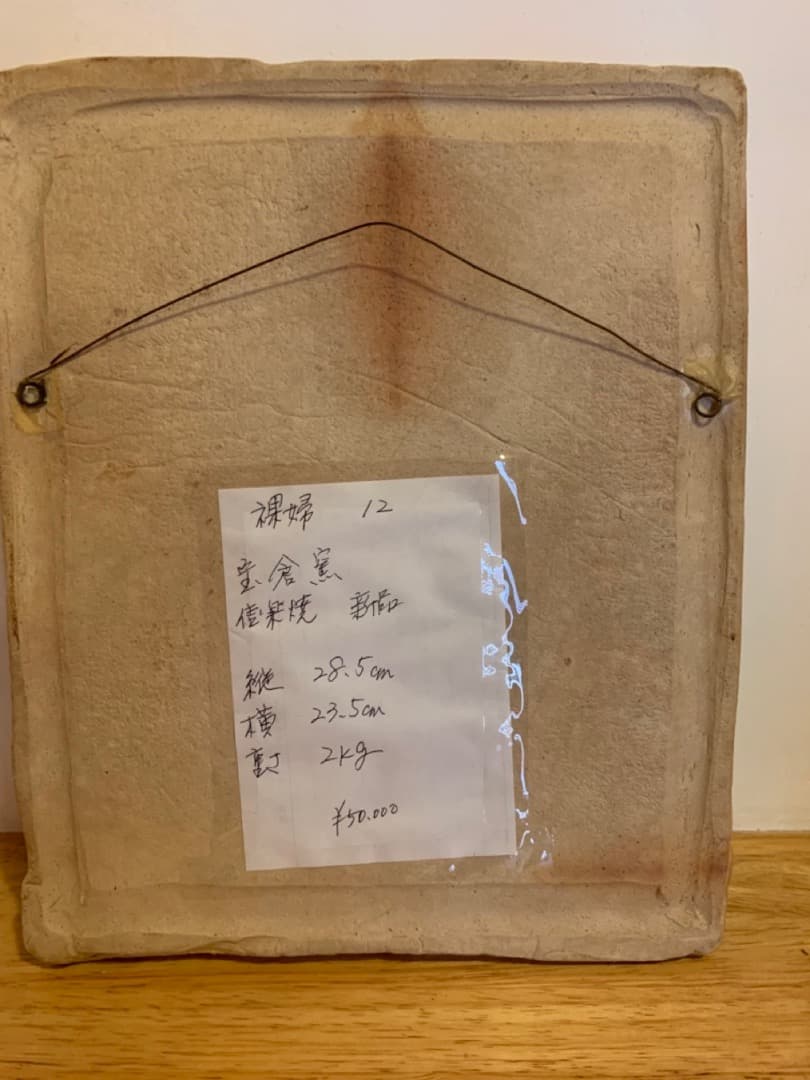 裸婦 12
宝倉窯
信楽焼 新品
縦 28.5cm
横 23.5cm
重さ 2kg
¥50.000